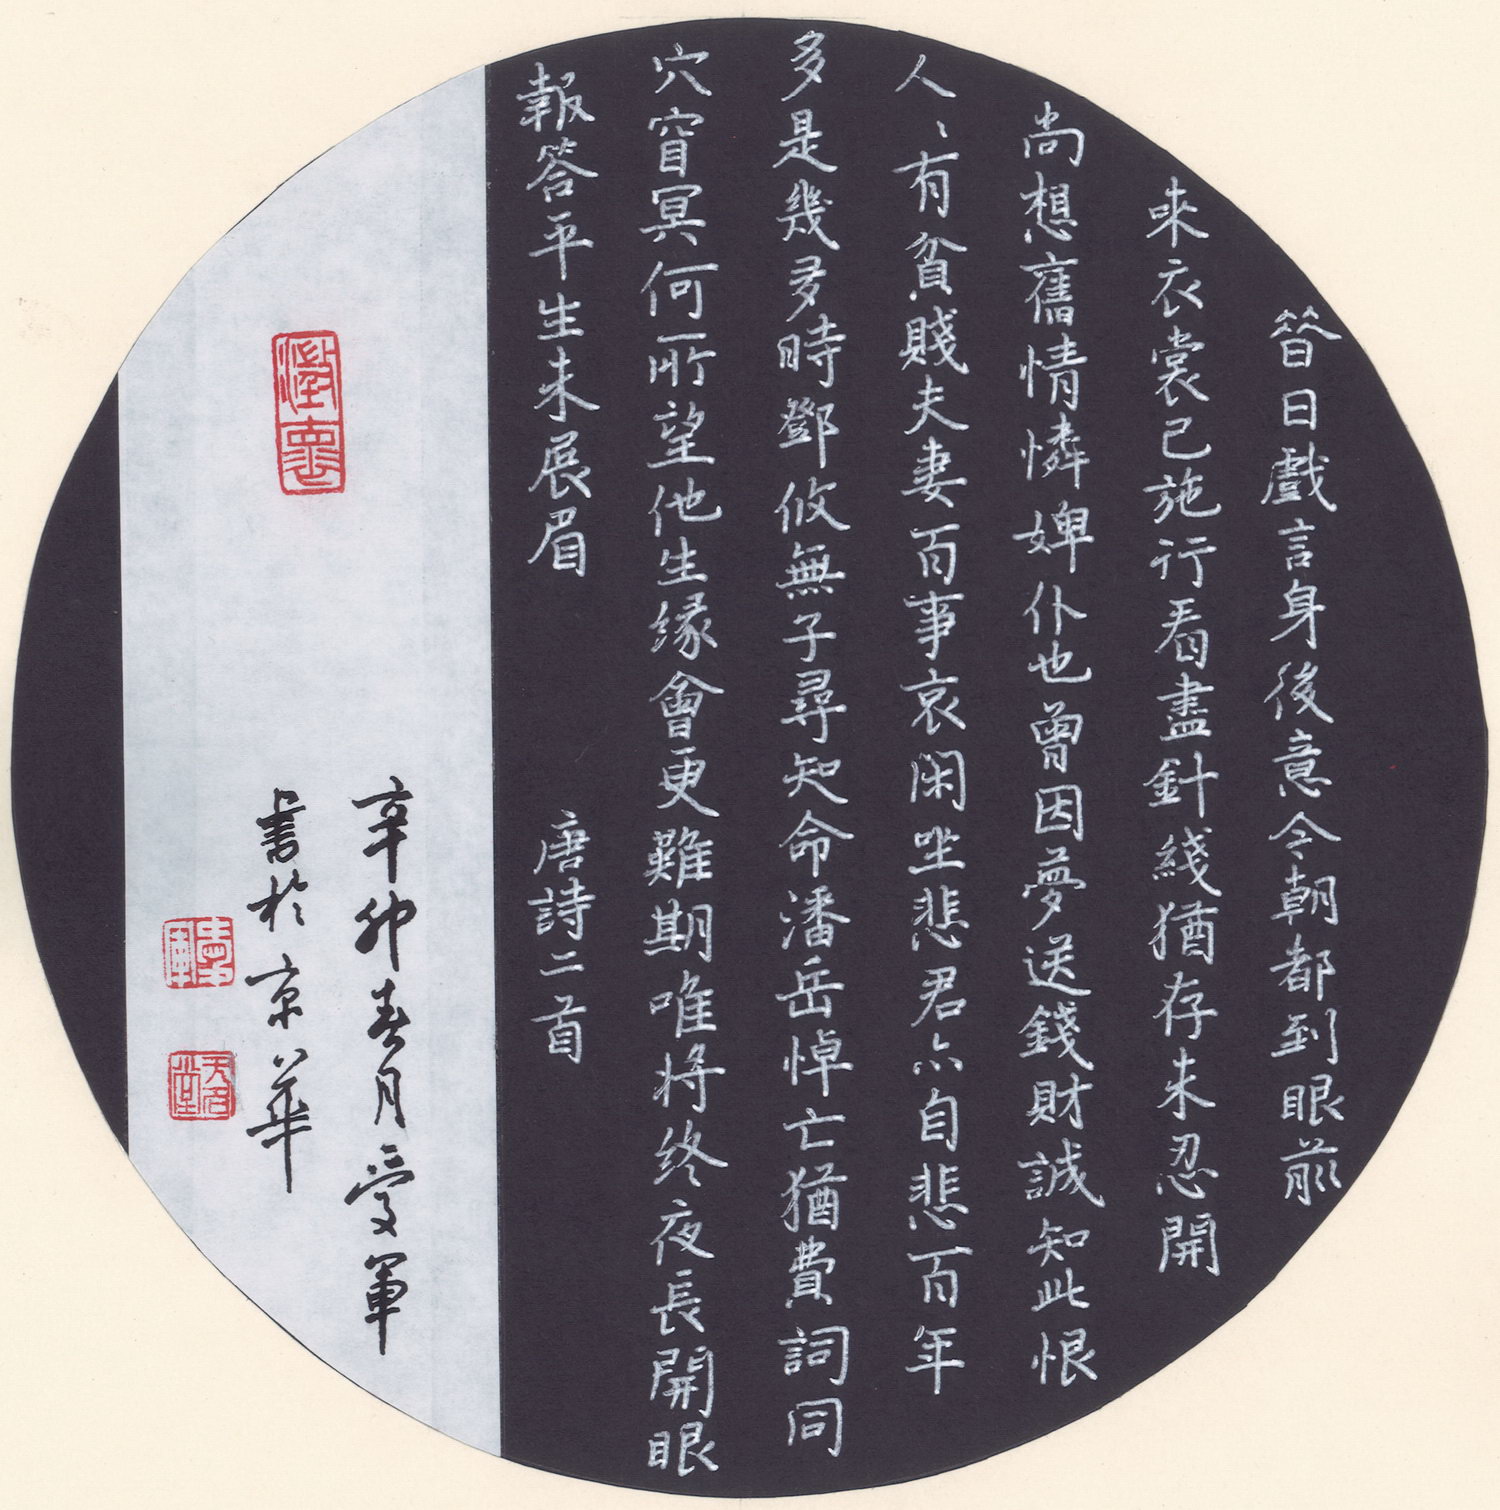 昔日戲言身後意今朝都到眼前
來衣裳已施行看盡針綫猶存未忍開
尚想舊情憐婢仆也曾因夢送錢財誠知此恨
人〻有貧賤夫妻百事哀閑坐悲君亦自悲百年
多是幾多時鄧攸無子尋知命潘岳悼亡猶費詞同
穴窅冥何所望他生緣會更難期唯將終夜長開眼
報答平生未展眉 唐詩二首
辛卯春月受軍
書於京華